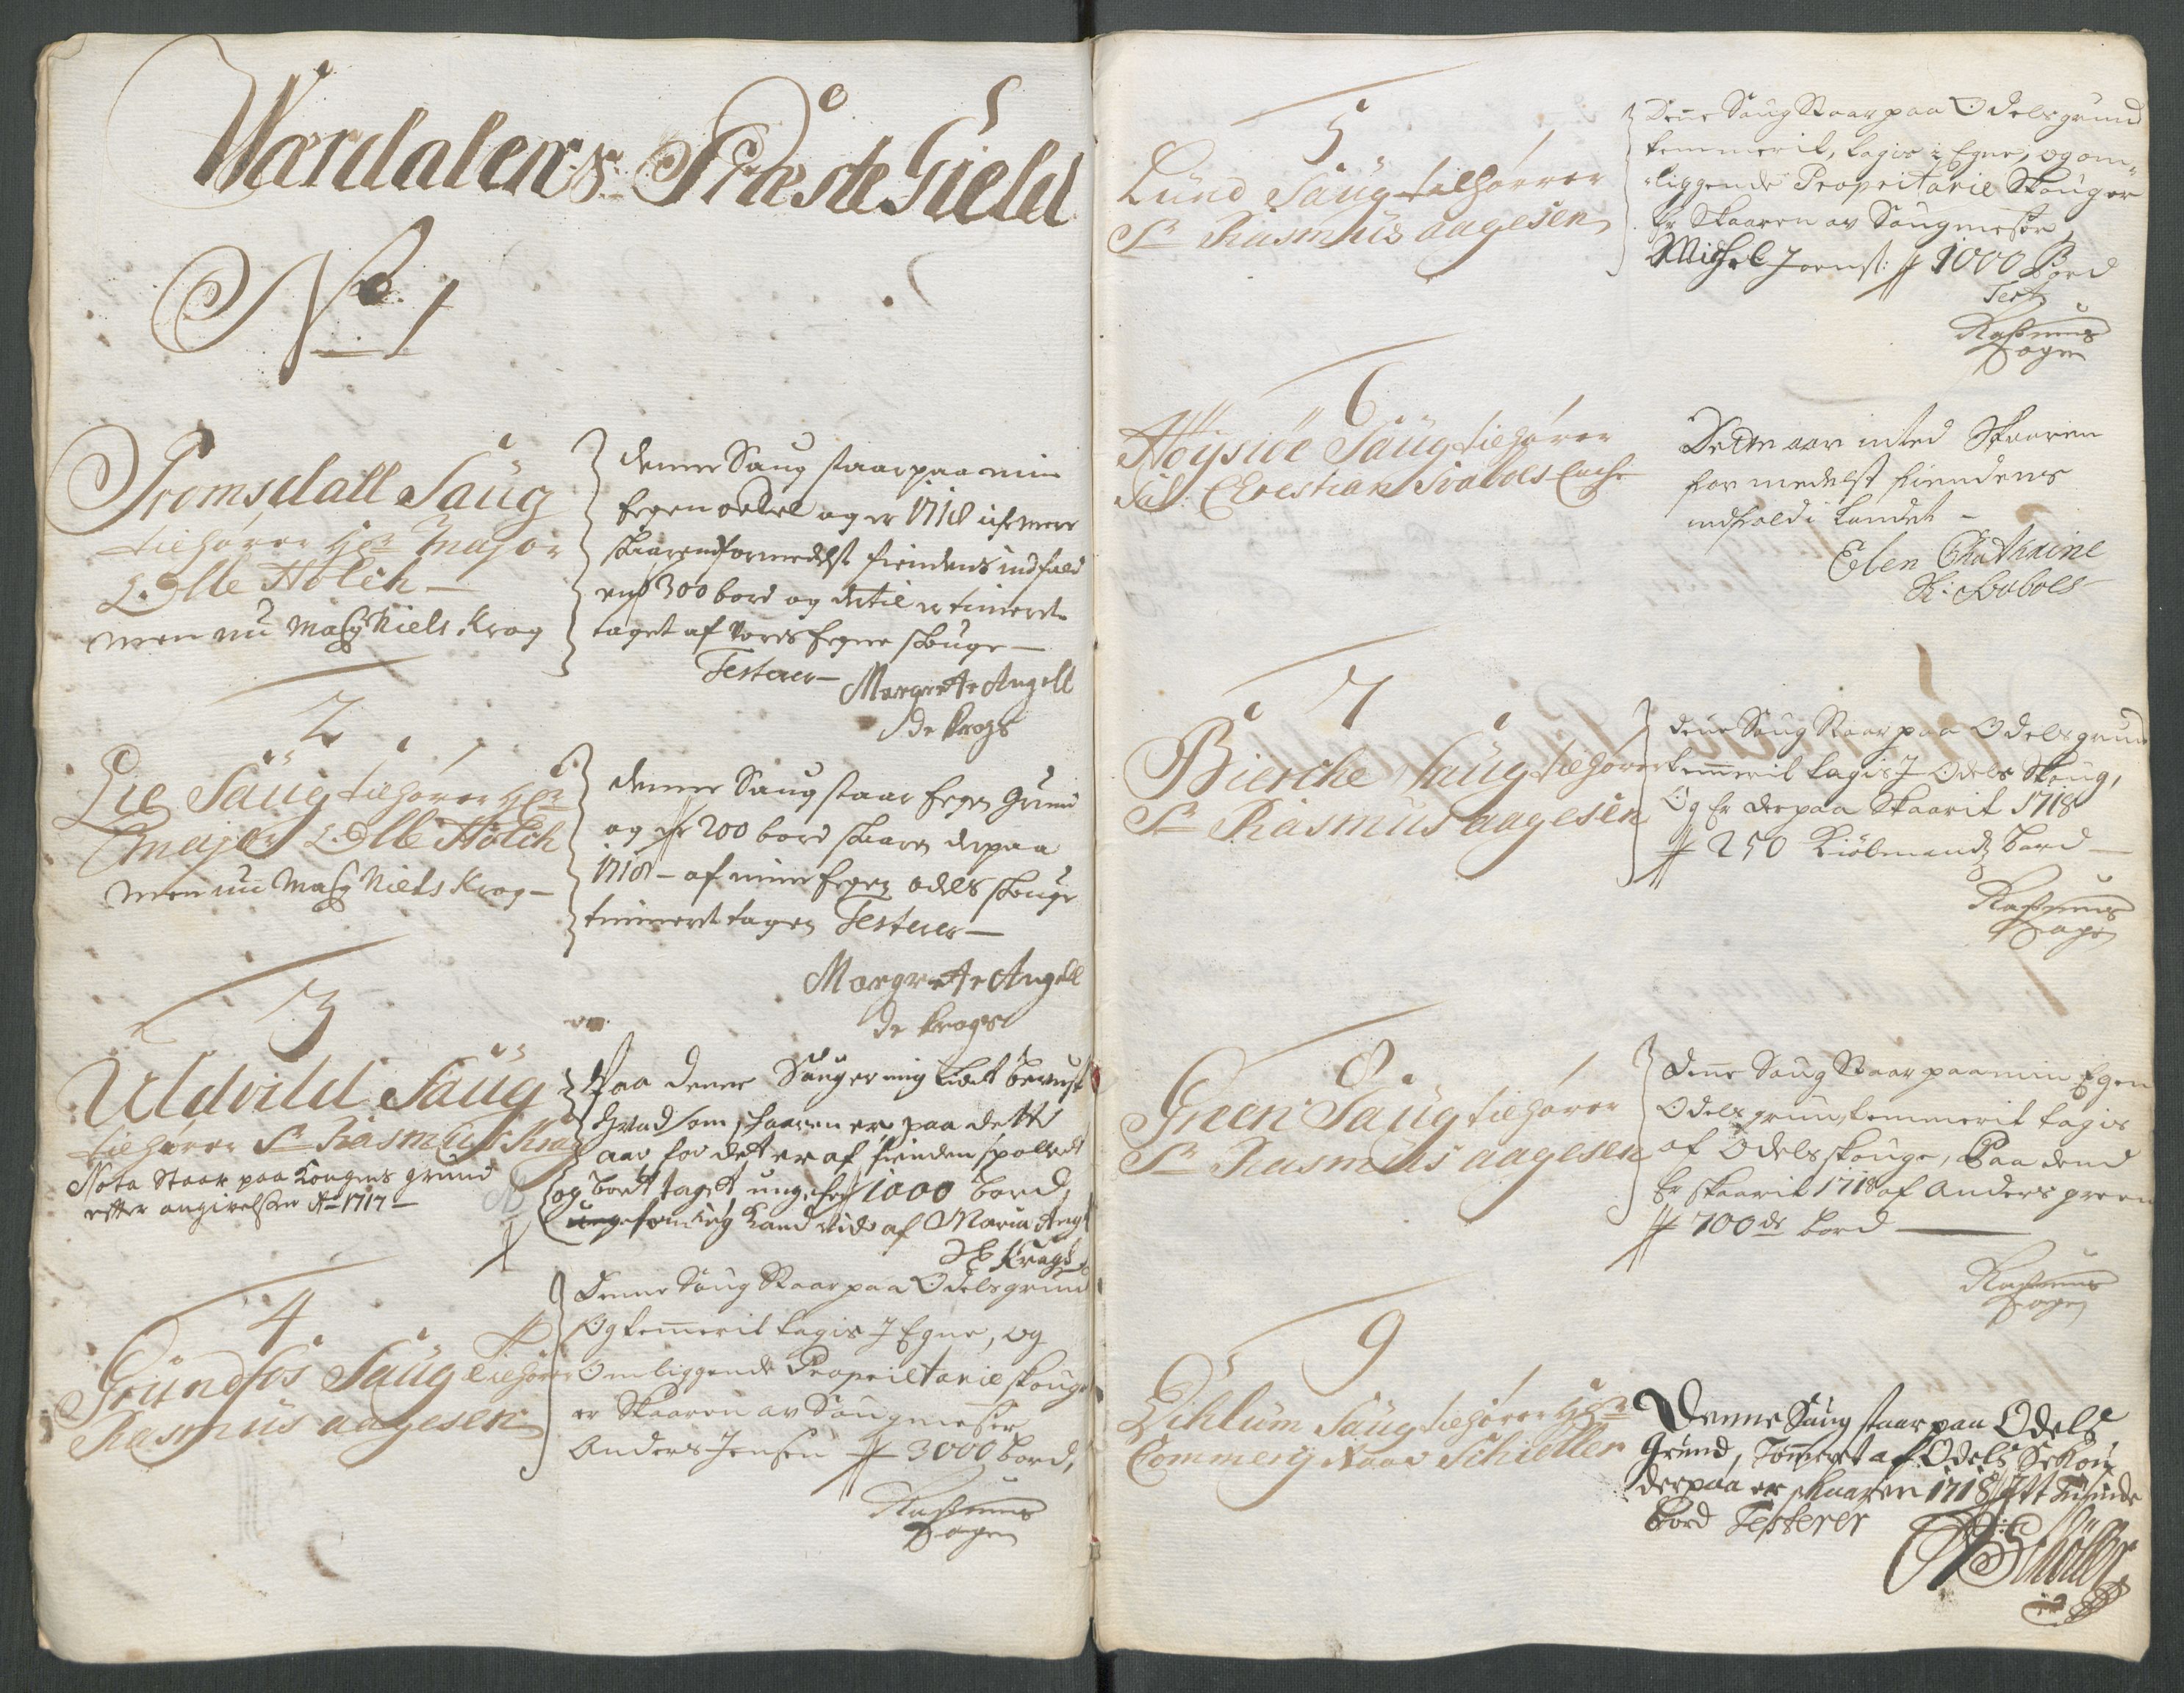 Wærdalens Præste Gield
No 1
Tromsdall Saug
tilhører Hr Major
L. Olle Holch
men nu Mag Niels Krog
denne Saug staar paa min
Eegen oedel og er 1718 iche mere
skaaren formedelst fiendens indfald
end 300 bord og dertil er timret
taget af Vores Eegne skouge
Testerer
Margrete Angell
Sl. Krogs
2
Lie Saug tilhører Hr
Major L. Olle Holch
men nu Mag Niels Krog
denne Saug staar Eegen Grund
og er 200 bord skaaren derpaa
1718 af min Eegen odels skouge
timret tagen Testerer
Margrete Angell
Sl. Krogs
3
Uldvild Saug
tilhører Sr Rasmus Krag
Nota Staar paa Kongens grund
efter angivelsen Ao 1717
Paa denne Saug er mig Lidet bevust
hvad som skaaren er paa dette
aar for det er af fienden spolleret
og bort taget ungefer 1000 bord,
som ieg Kand vide af Maria Ang
Sl Krags
4
Grundfos Saug tilhører
Rasmus aagesen
Denne Saug Staar paa Odels grund
Og temerit tagis J Egne, og
Omliggende Proprietarie skouge
er Skaaren av Saugmester
Anders Jensen # 3000 bord,
Rasmus
Aagen
5
Lund Saug tilhørrer
Sr Rasmus aagesen
Dene Saug Staar paa Odels grund
temmerit, tagis i Egne, og om=
=liggende Proprietarie Skouger
Er Skaaren av Saugmester
Michel Joens: # 1000 Bord
Test
Rasmus
Aagen
6
Høysiøe Saug tilhører
Sal. Chrestian Svabois Enche
Dette aar inted Skaaren
formedelst fiendens
indfald i Landet
Elen Chathrine
Sl: Svabois
7
Bierche Saug tilhører
Sr Rasmus aagesen
Dene Saug Staar paa Odels grund
temerit tagis J Odels Skoug,
Og Er derpaa Skaarit 1718
# 250 Kiøbmands bord
Rasmus
Aagen
8
Green Saug tilhører
Sr Rasmus aagesen
Dene Saug Staar paa min Egen
Odels grun, temmerit tagis
af Odels skouge, Paa dend
Er skaarit 1718 af Anders green
# 700de bord
Rasmus
Aagen
9
Eiklum Saug tilhører Hr
Commerj Raad Schiøller
Denne Saug staar paa Odels
Grund, Tømret af Odels Skou
derpaa er skaaren 1718 Itt Tusinde
Bord Testerer
Schøller